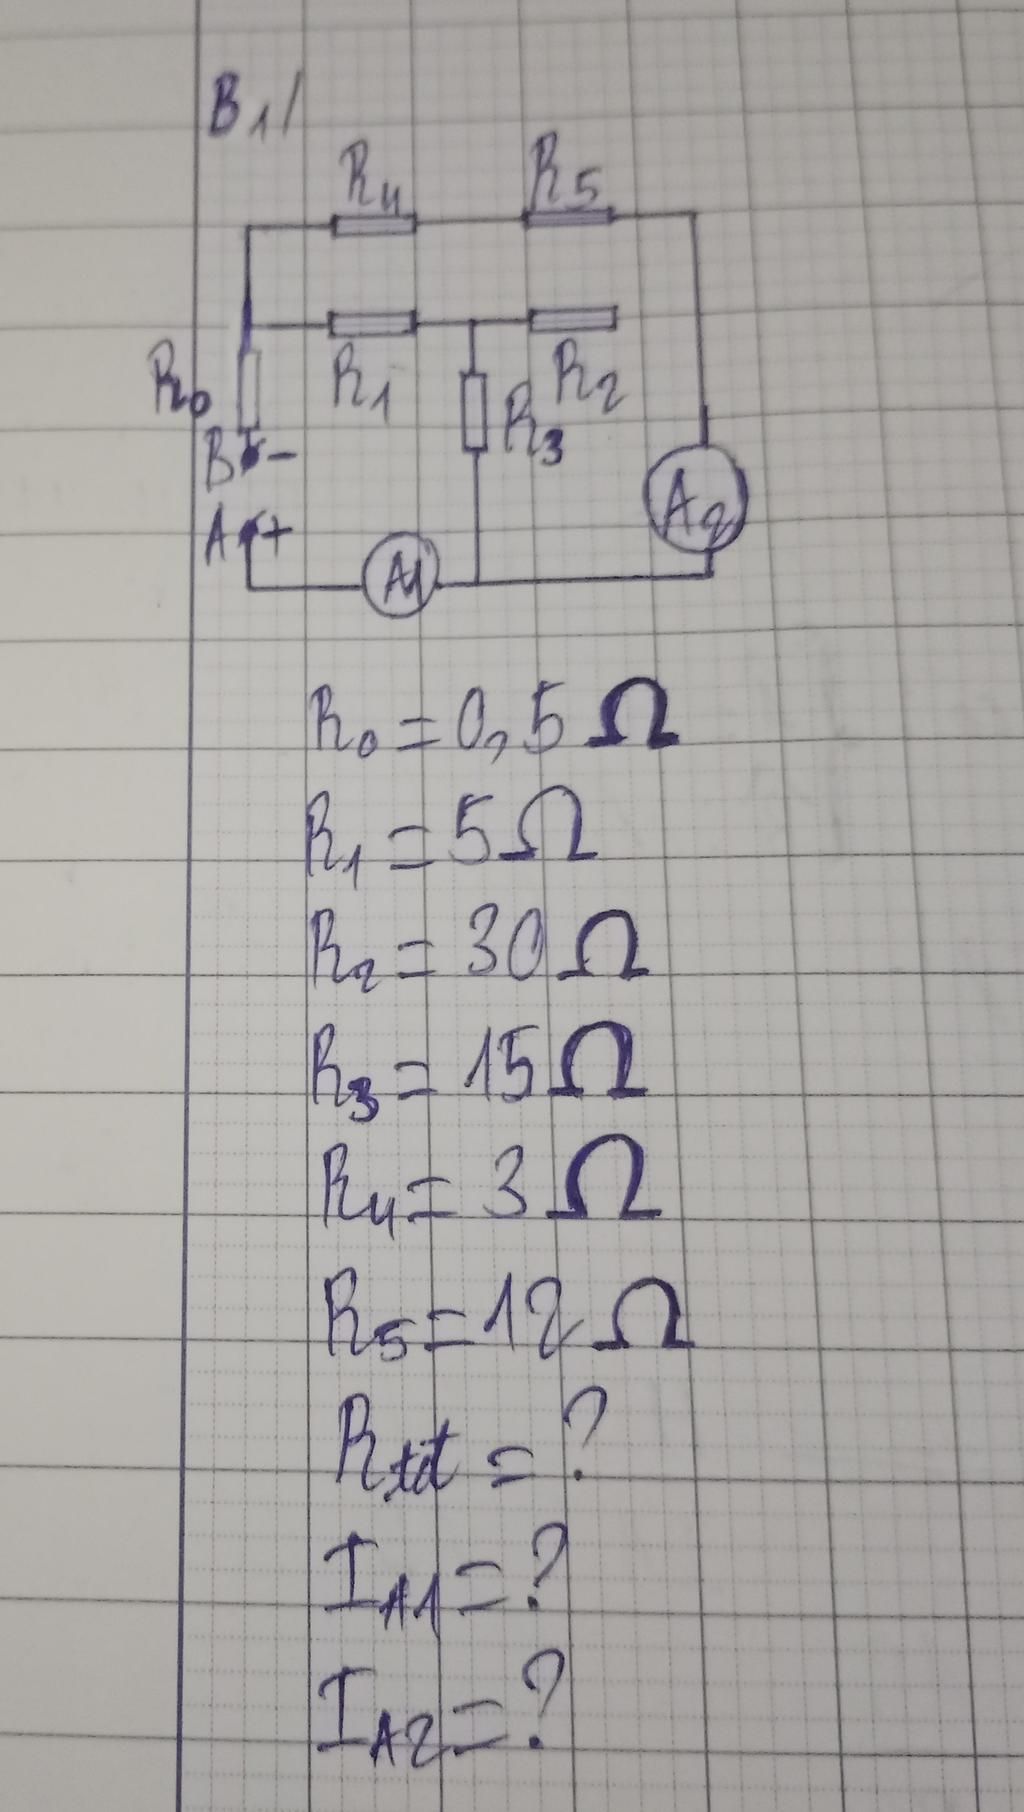 B1/
R4 R5
R0 R1 R2
R3
B -
A + A1 A2
R0 = 0,5 Ω
R1 = 5 Ω
R2 = 30 Ω
R3 = 15 Ω
R4 = 3 Ω
R5 = 12 Ω
Rtđ = ?
IA1 = ?
IA2 = ?